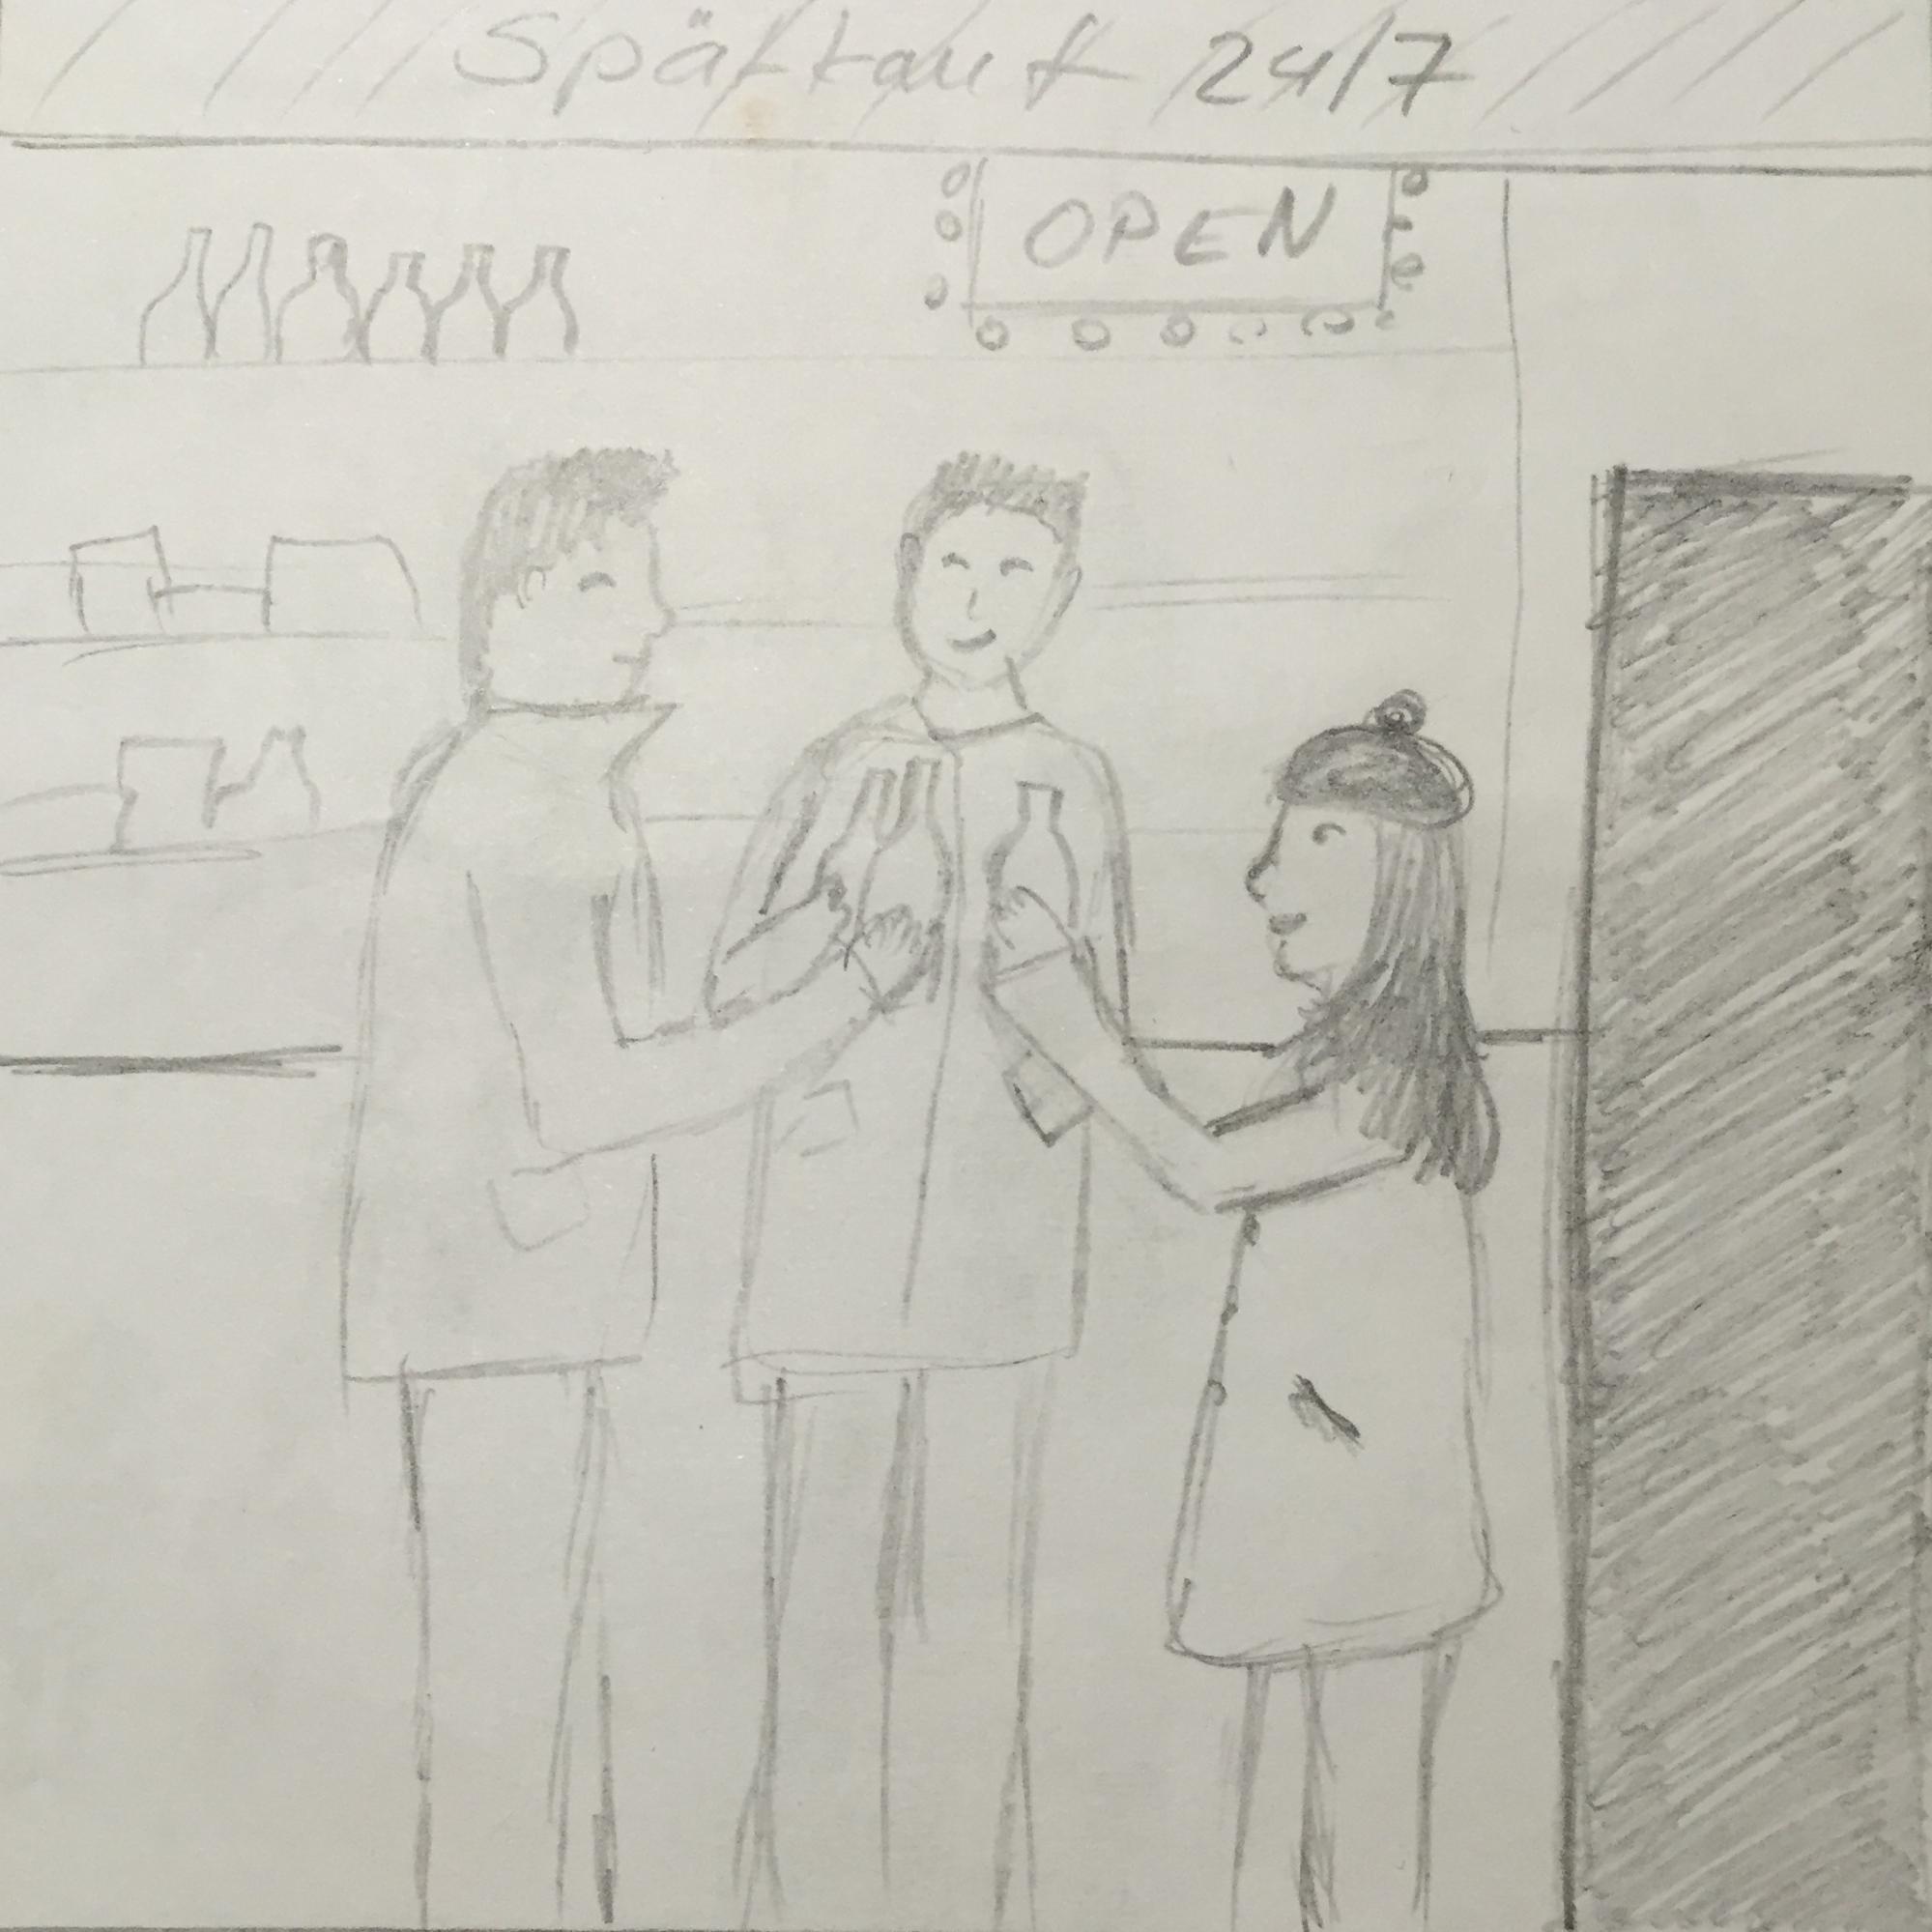 Spätkauf 24/7
OPEN